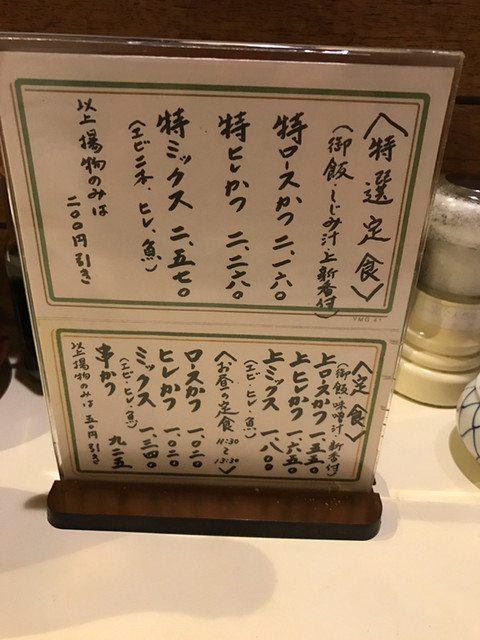 〈特選定食〉
（御飯・しじみ汁・上新香付）
特ロースかつ 二、一六〇
特ヒレかつ 二、二六〇
特ミックス 二、五七〇
（エビ二本、ヒレ、魚）
以上揚物のみは
二〇〇円引き
YMG 41
〈定食〉
（御飯・味噌汁・新香付）
上ロースかつ 一、五三〇
上ヒレかつ 一、六五〇
上ミックス 一、八〇〇
（エビ・ヒレ・魚）
〈お昼の定食 11:30〜13:30〉
ロースかつ 一、〇二〇
ヒレかつ 一、〇二〇
ミックス 一、三四〇
（エビ・ヒレ・魚）
串かつ 九二五
以上揚物のみは 五〇円引き